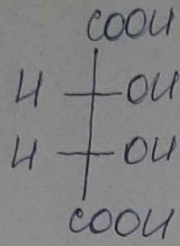 COOH
H OH
H OH
COOH